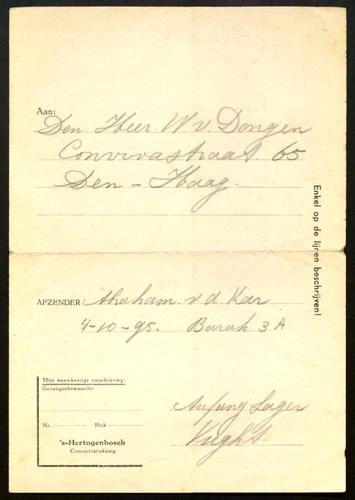 Aan:
Den Heer W v. Dongen
Convivastraat 65
Den - Haag.
Enkel op de lijnen beschrijven!
AFZENDER Abraham v. d. Kar
4-10-95. Barak 3 A
Mijn nauwkeurige omschrijving:
Gevangenbewaarder
Nr. Blok
's-Hertogenbosch
Concentratiekamp
Lager
Vught.